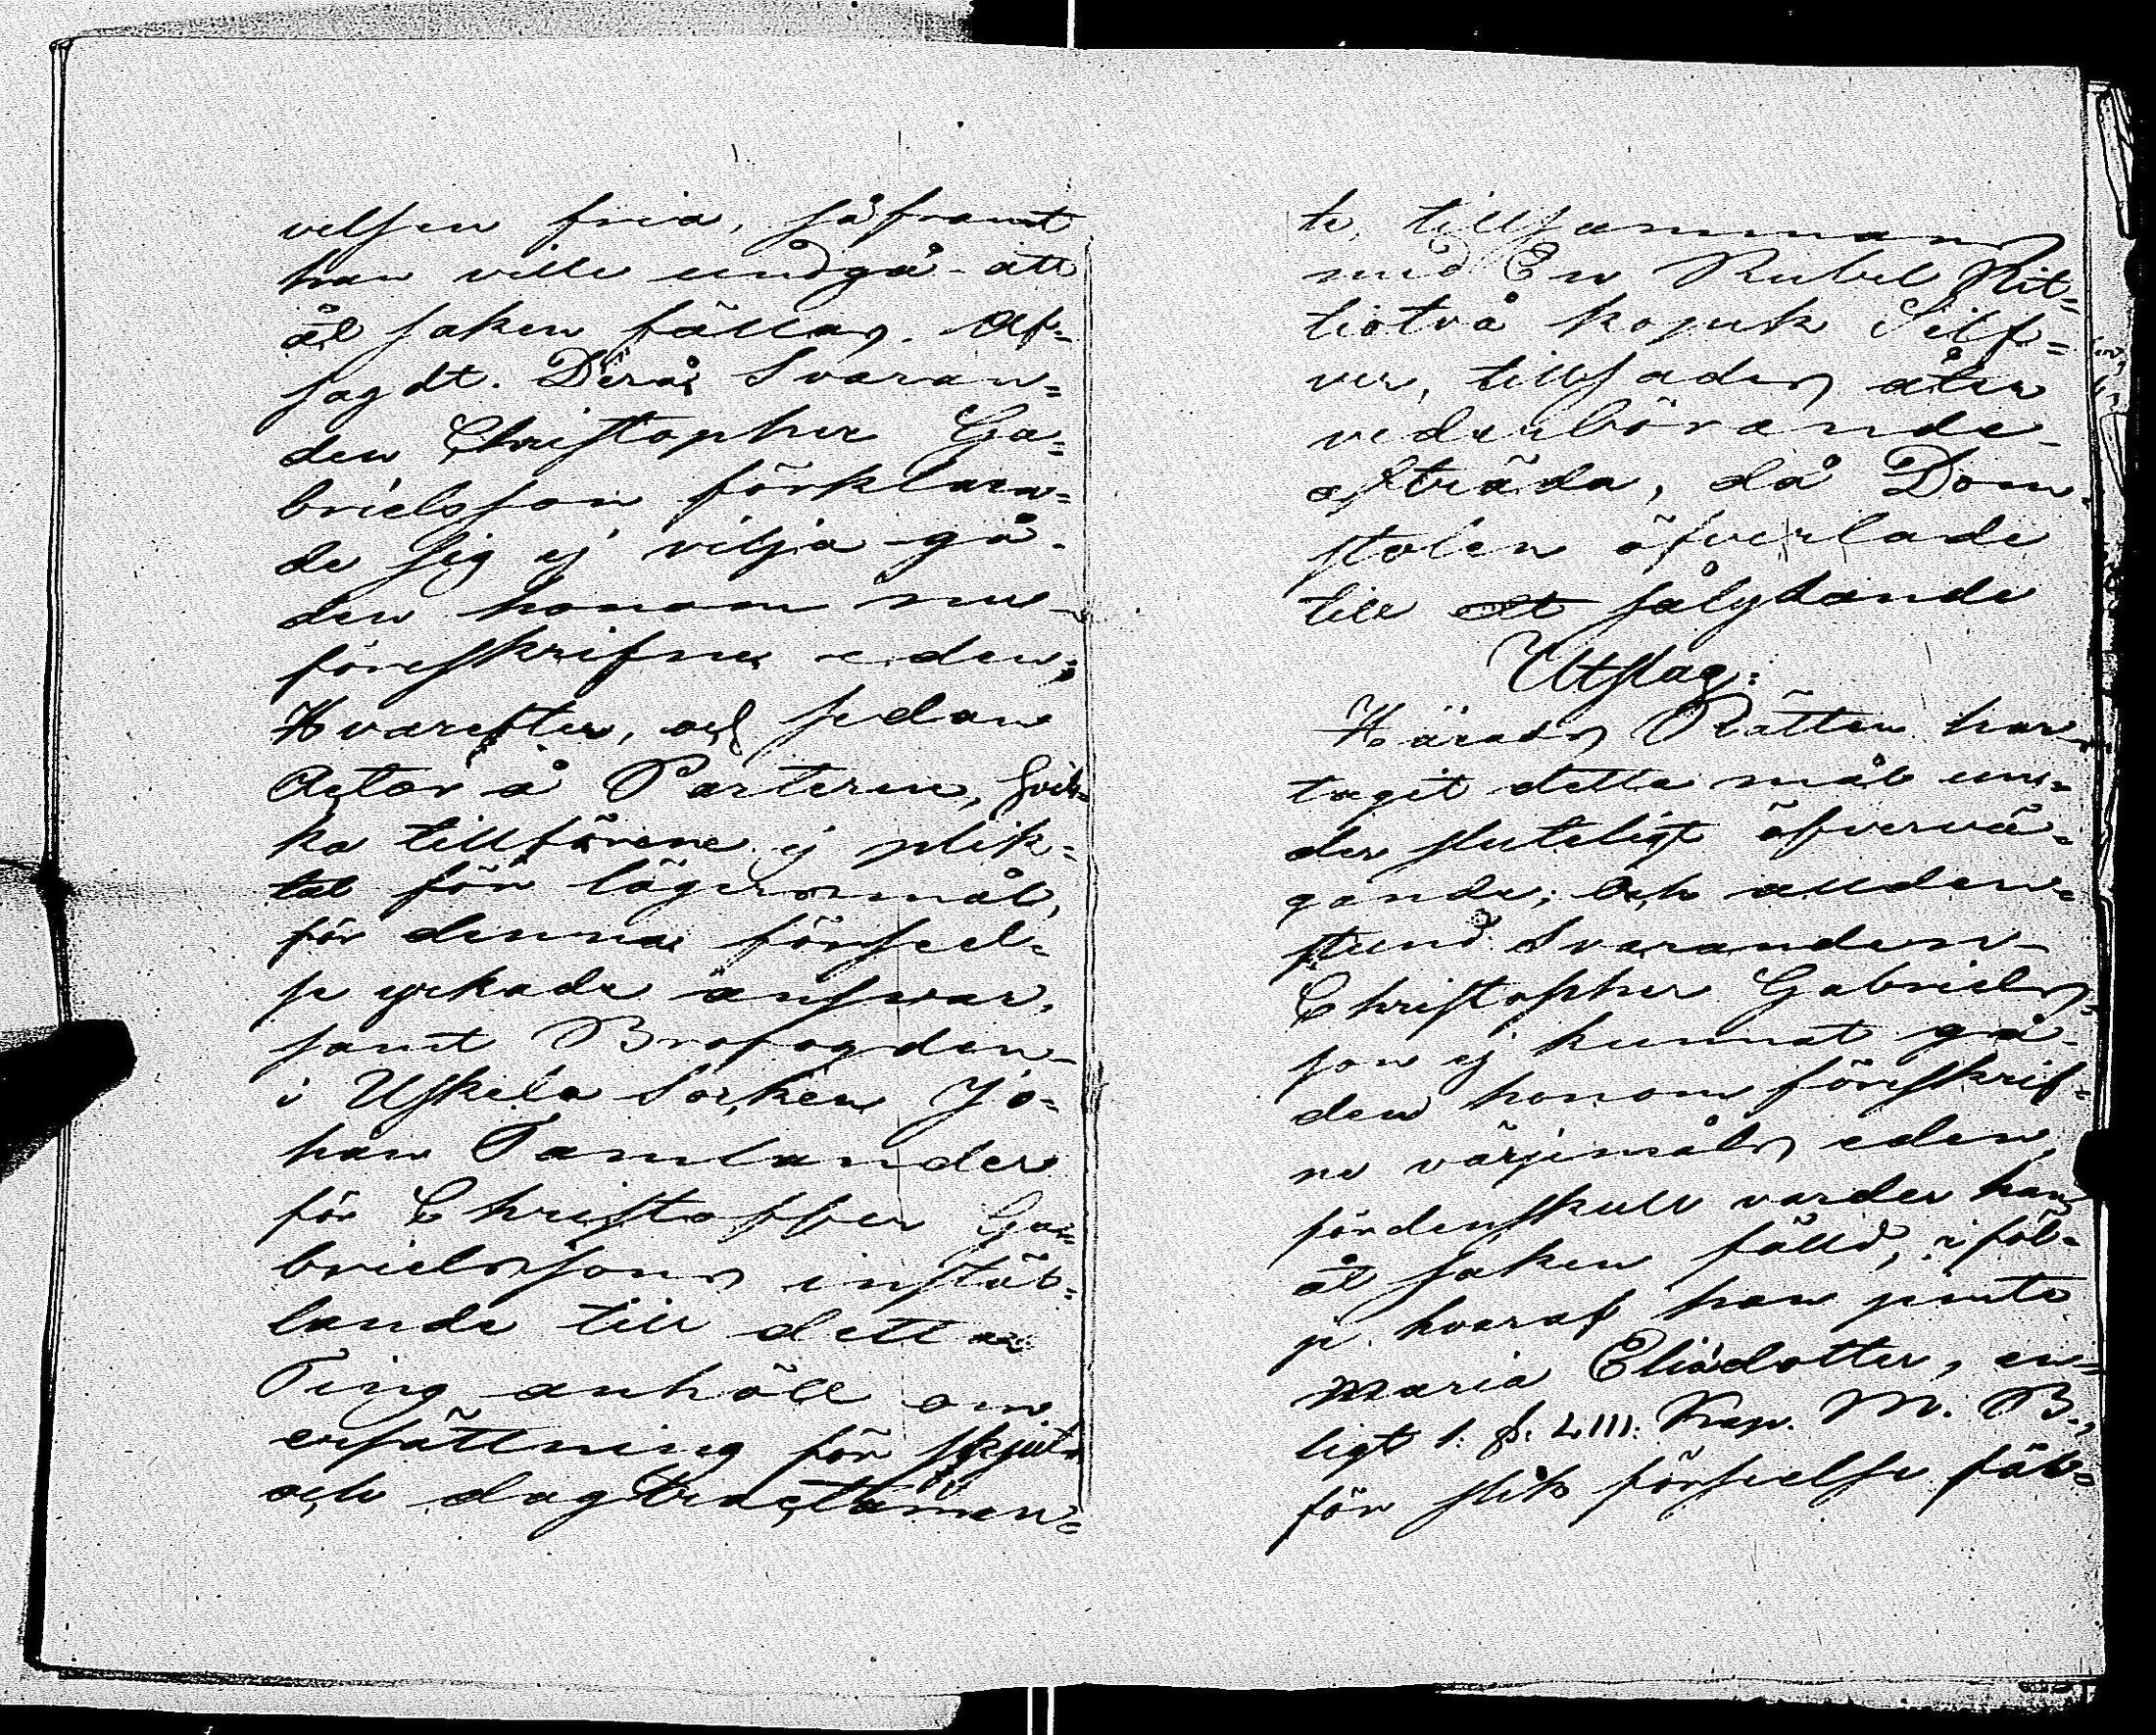 velsen fria, såframt
han ville undgå att
åt saken fällas. Af-
sagdt. Derå Svaran-
den Christopher Ga-
brielsson förklara-
de sig ej vilja gå
den honom nu
föreskrifne eden;
Hvarefter, och sedan
Actor å Parterne, hvil-
ka tillförene ej plik-
tat för lägersmål,
för denna förseel-
se yrkade answar,
samt Brofogden
i Uskela Socken Jo-
han Tamlander
för Christopher Ga-
brielssons instäl-
lande till detta
Ting anhöll om
ersättning för skjuts
och dagtractamen-
te, tillsammans
med En Rubel Nit-
tiotvå kopek Silf-
ver, tillsades åter
vederbörande
afträda, då Dom-
stolen öfverlade
till ett sålydande
Utslag:
Härads Rätten har
tagit detta mål un-
der slutligt öfvervä-
gande; Och alden-
stund Svaranden
Christopher Gabriels-
son ej kunnat gå
den honom föreskrif-
ne värjemåls eden
fördenskull varder han
åt saken fälld, i föl-
je hvaraf han jemte
Maria Eliædotter, en-
ligt 1. §. LIII. Kap. M. B.,
för slik förseelse fäl-